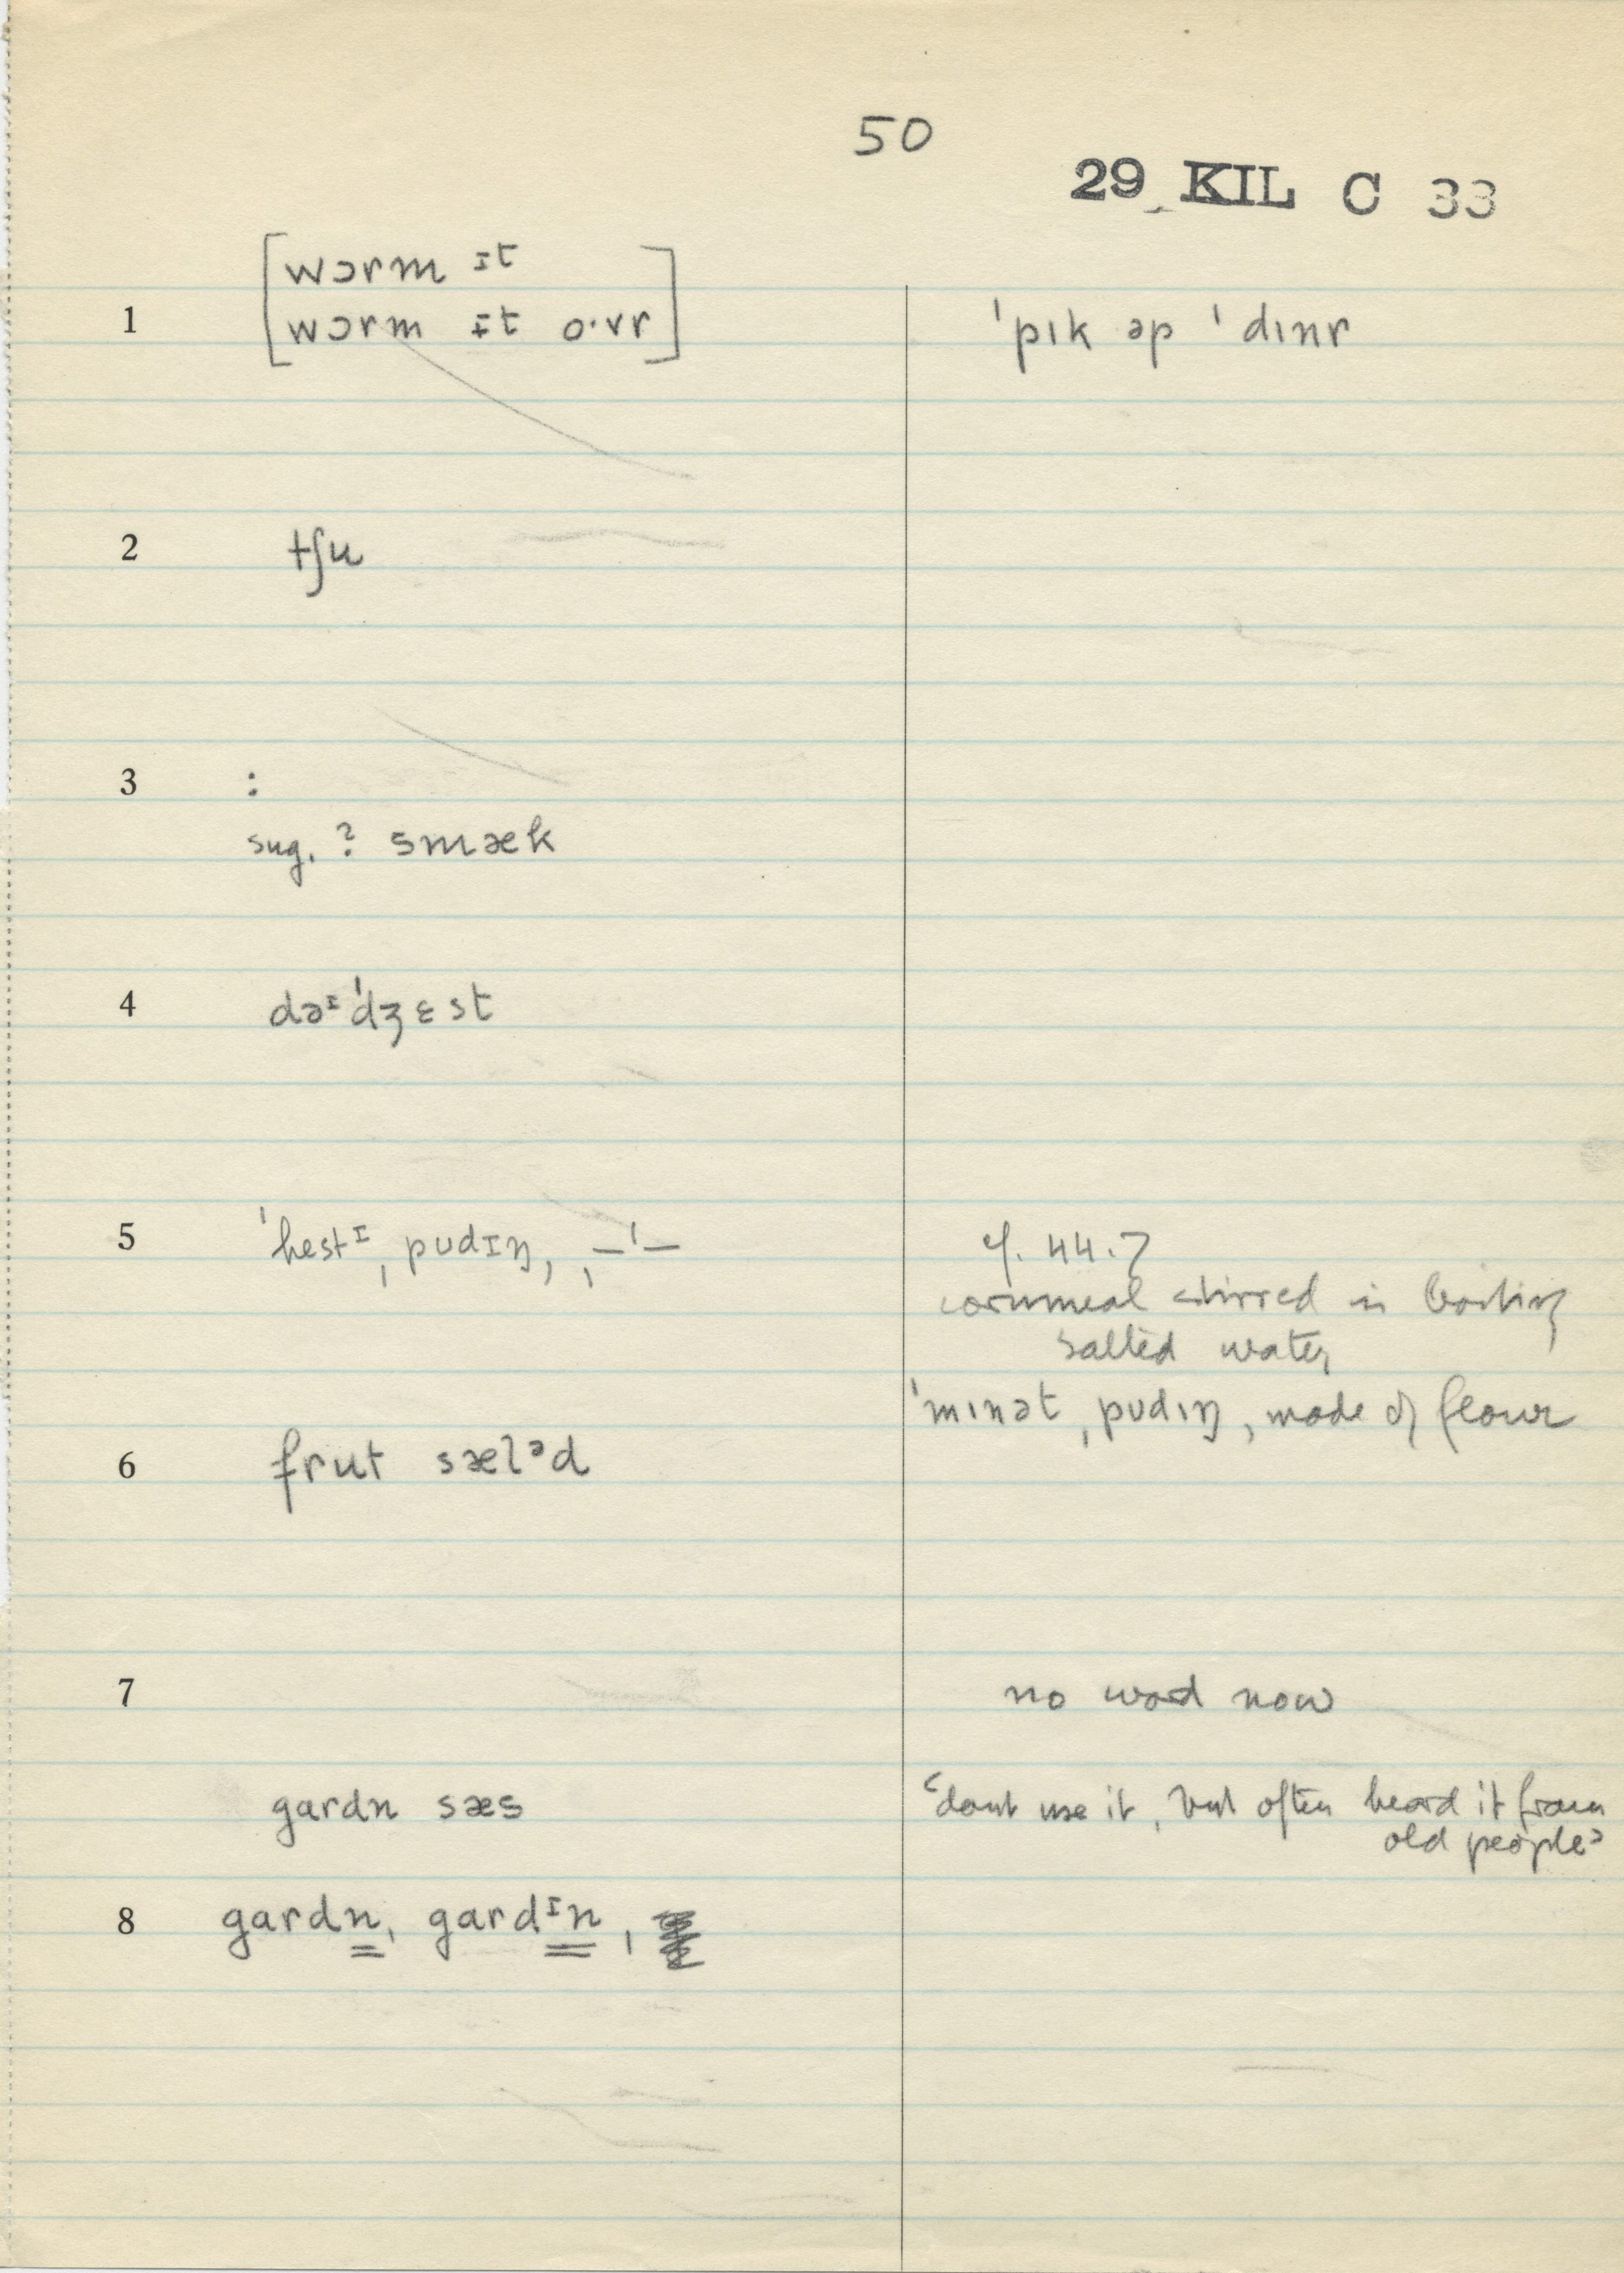 50
29 KIL C 33
[wɔrm ɪt
1 wɔrm ɪt o·vr] ˈpɪk əp ˈdɪnr
2 tʃu
3 :
sug. ? smæk
4 dəᶦˈdʒɛst
5 ˈhestᶦˌpudɪŋ, ˌ—ˈ— cf. 44.7
cornmeal stirred in boiling
salted water,
ˈmɪnətˌpudɪŋ, made of flour
6 frut sælᵊd
7 no word now
gardn sæs ‘dont use it, but often heard it from
old people’
8 gardn, gardᶦn,